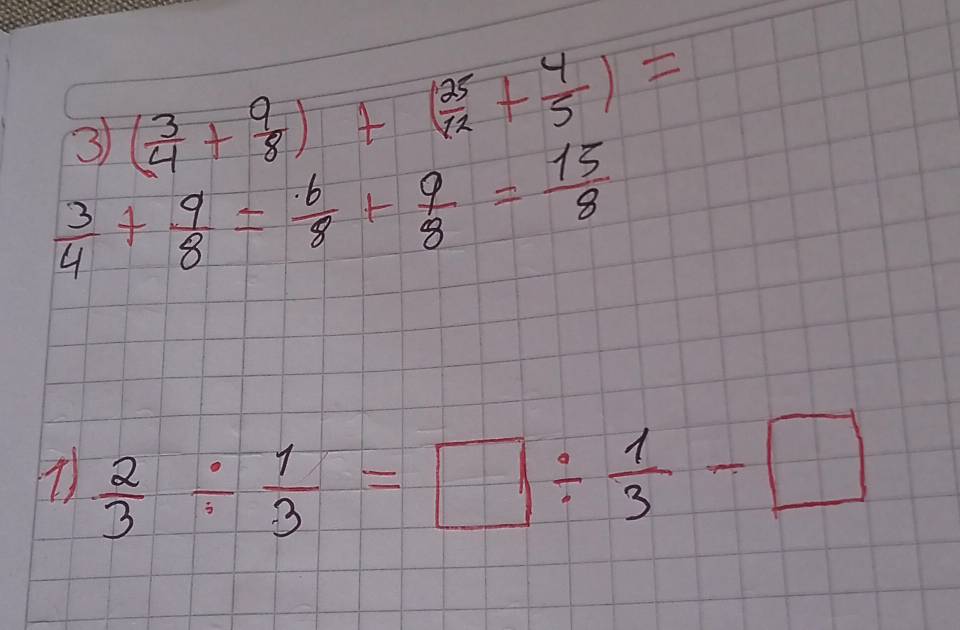 3) (3/4 + 9/8) + (25/12 + 4/5) =
3/4 + 9/8 = 6/8 + 9/8 = 15/8
1) 2/3 ÷ 1/3 = □ ÷ 1/3 - □